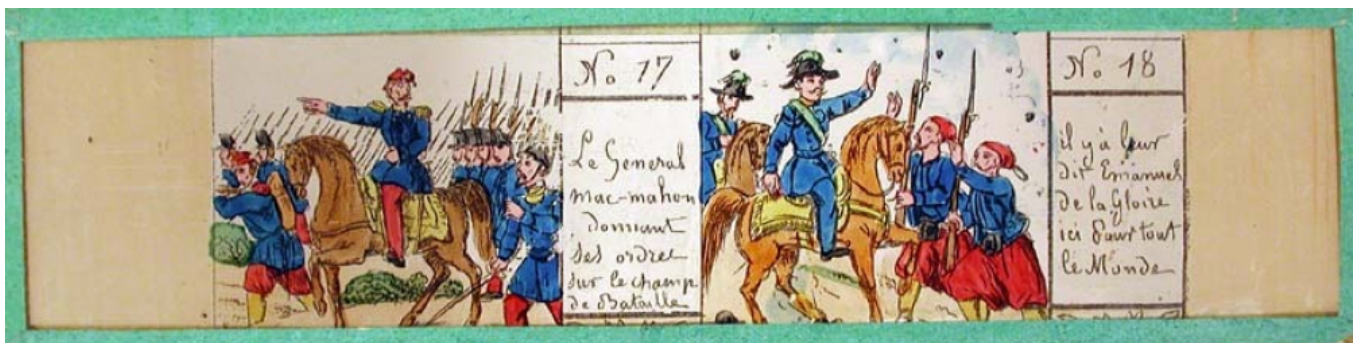 No 17
Le General
mac-mahon
donnant
ses ordres
sur le champ
de Bataille
No 18
il y à leur
dit Emanuel
de la Gloire
ici pour tout
le Monde